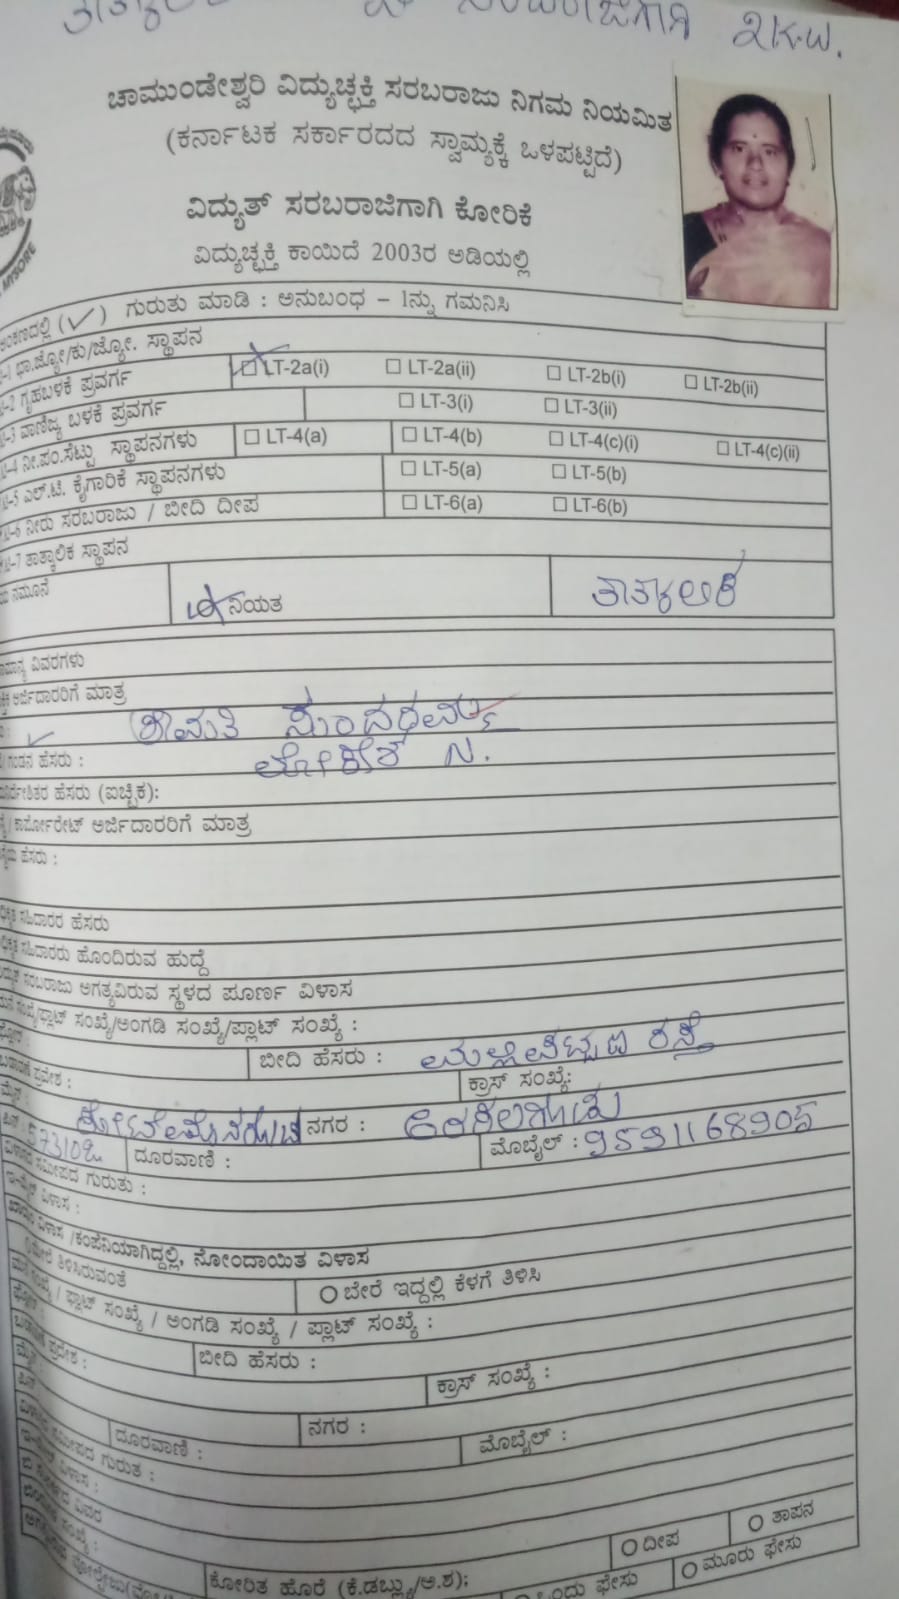 2K.W.
ಚಾಮುಂಡೇಶ್ವರಿ ವಿದ್ಯುಚ್ಛಕ್ತಿ ಸರಬರಾಜು ನಿಗಮ ನಿಯಮಿತ
(ಕರ್ನಾಟಕ ಸರ್ಕಾರದದ ಸ್ವಾಮ್ಯಕ್ಕೆ ಒಳಪಟ್ಟಿದೆ)
ವಿದ್ಯುತ್ ಸರಬರಾಜಿಗಾಗಿ ಕೋರಿಕೆ
ವಿದ್ಯುಚ್ಛಕ್ತಿ ಕಾಯಿದೆ 2003ರ ಅಡಿಯಲ್ಲಿ
(✓) ಗುರುತು ಮಾಡಿ : ಅನುಬಂಧ – 1ನ್ನು ಗಮನಿಸಿ
ಭಾ.ಜ್ಯೋ/ಕು/ಜ್ಯೋ. ಸ್ಥಾಪನ
ಗೃಹಬಳಕೆ ಪ್ರವರ್ಗ ☐ LT-2a(i) ☐ LT-2a(ii) ☐ LT-2b(i) ☐ LT-2b(ii)
ವಾಣಿಜ್ಯ ಬಳಕೆ ಪ್ರವರ್ಗ ☐ LT-3(i) ☐ LT-3(ii)
ನೀ.ಪಂ.ಸೆಟ್ಟು ಸ್ಥಾಪನಗಳು ☐ LT-4(a) ☐ LT-4(b) ☐ LT-4(c)(i) ☐ LT-4(c)(ii)
ಎಲ್.ಟಿ. ಕೈಗಾರಿಕೆ ಸ್ಥಾಪನಗಳು ☐ LT-5(a) ☐ LT-5(b)
ನೀರು ಸರಬರಾಜು / ಬೀದಿ ದೀಪ ☐ LT-6(a) ☐ LT-6(b)
ತಾತ್ಕಾಲಿಕ ಸ್ಥಾಪನ
ನಮೂನೆ ನಿಯತ
ವಿವರಗಳು
ಅರ್ಜಿದಾರರಿಗೆ ಮಾತ್ರ
ಶ್ರೀಮತಿ
ಗಂಡನ ಹೆಸರು : ಲೋಕೇಶ N.
ಹೆಸರು (ಐಚ್ಛಿಕ):
ಕಾರ್ಪೋರೇಟ್ ಅರ್ಜಿದಾರರಿಗೆ ಮಾತ್ರ
ಹೆಸರು :
ಸಹಿದಾರರ ಹೆಸರು
ಸಹಿದಾರರು ಹೊಂದಿರುವ ಹುದ್ದೆ
ಸರಬರಾಜು ಅಗತ್ಯವಿರುವ ಸ್ಥಳದ ಪೂರ್ಣ ವಿಳಾಸ
ಸಂಖ್ಯೆ/ಫ್ಲಾಟ್ ಸಂಖ್ಯೆ/ಅಂಗಡಿ ಸಂಖ್ಯೆ/ಪ್ಲಾಟ್ ಸಂಖ್ಯೆ :
ಬೀದಿ ಹೆಸರು : ರಸ್ತೆ
ಪ್ರದೇಶ : ಕ್ರಾಸ್ ಸಂಖ್ಯೆ:
ನಗರ : ಅರಕಲಗೂಡು
ಪಿನ್ : 573102 ದೂರವಾಣಿ : ಮೊಬೈಲ್ : 9591168905
ಸಮೀಪದ ಗುರುತು :
ಇ-ಮೈಲ್ ವಿಳಾಸ :
ವಿಳಾಸ /ಕಂಪೆನಿಯಾಗಿದ್ದಲ್ಲಿ, ನೋಂದಾಯಿತ ವಿಳಾಸ
ಮೇಲೆ ತಿಳಿಸಿರುವಂತೆ ಬೇರೆ ಇದ್ದಲ್ಲಿ ಕೆಳಗೆ ತಿಳಿಸಿ
ಸಂಖ್ಯೆ / ಫ್ಲಾಟ್ ಸಂಖ್ಯೆ / ಅಂಗಡಿ ಸಂಖ್ಯೆ / ಪ್ಲಾಟ್ ಸಂಖ್ಯೆ :
ಬೀದಿ ಹೆಸರು :
ಪ್ರದೇಶ : ಕ್ರಾಸ್ ಸಂಖ್ಯೆ :
ನಗರ :
ದೂರವಾಣಿ : ಮೊಬೈಲ್ :
ಸಮೀಪದ ಗುರುತ :
ವಿಳಾಸ :
ವಿವರ
ಸಂಖ್ಯೆ : ದೀಪ ತಾಪನ
ಕೋರಿತ ಹೊರೆ (ಕೆ.ಡಬ್ಲ್ಯು/ಅ.ಶ); ಒಂದು ಫೇಸು ಮೂರು ಫೇಸು